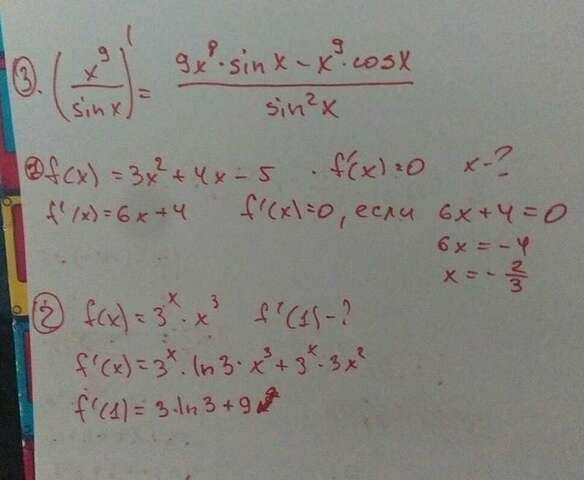 ③. (x⁹/sin x)' = (9x⁸·sin x − x⁹·cos x)/sin²x
① f(x) = 3x² + 4x − 5 · f'(x) = 0 x − ?
f'(x) = 6x + 4 f'(x) = 0, если 6x + 4 = 0
6x = −4
x = −2/3
② f(x) = 3ˣ · x³ f'(1) − ?
f'(x) = 3ˣ · ln3 · x³ + 3ˣ · 3x²
f'(1) = 3·ln3 + 9